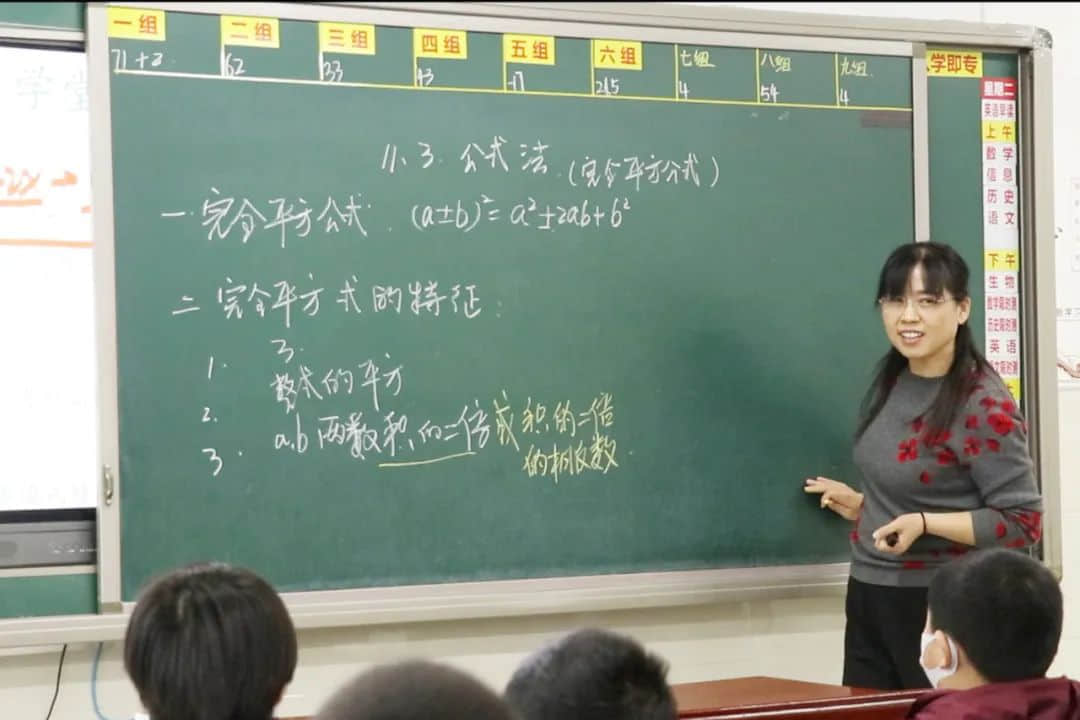 一组 二组 三组 四组 五组 六组 七组 八组 九组
71+2 62 33 43 215 4 54 4
学即专
学堂
11.3.公式法.(完全平方公式)
一.完全平方公式.(a±b)²=a²±2ab+b²
二 完全平方式的特征:
1. 3.
2. 整式的平方
3. a,b两数积的二倍或积的二倍
的相反数.
星期二
英语早读
上午
数学
信息
历史
语文
下午
生物
数学限时测
历史限时测
英语